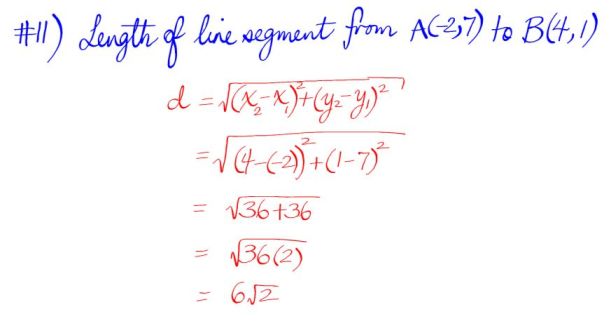 #11) Length of line segment from A(-2,7) to B(4,1)
d = √((x₂-x₁)²+(y₂-y₁)²)
= √((4-(-2))²+(1-7)²)
= √36+36
= √36(2)
= 6√2